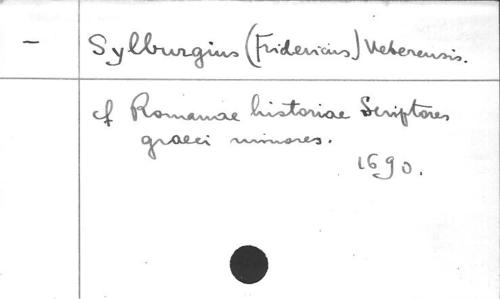 — Sylburgius (Fridericus) Veterensis.
cf Romanae historiae Scriptores
graeci minores.
1690.